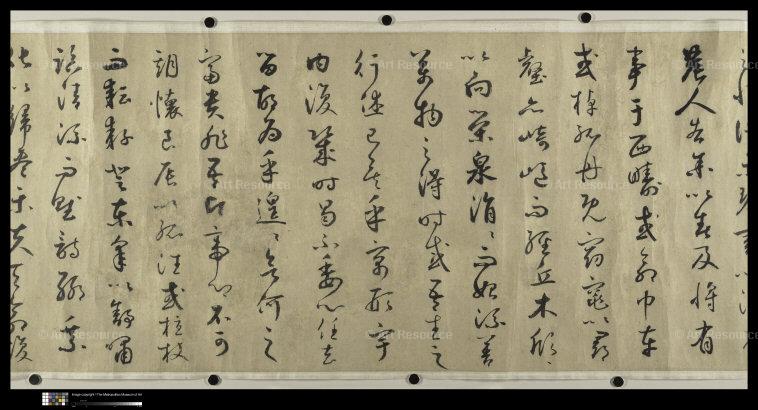 農人告余以春及將有
事于西疇或命巾車
或棹孤舟既窈窕以尋
壑亦崎嶇而經丘木欣〻
以向榮泉涓〻而始流善
萬物之得時感吾生之
行休已矣乎寓形宇
內復幾時曷不委心任去
留胡為乎遑〻欲何之
富貴非吾願帝鄉不可
期懷良辰以孤往或植杖
而耘耔登東皋以舒嘯
臨清流而賦詩聊乘
化以歸盡樂夫天命復
© Art Resource
Image copyright © The Metropolitan Museum of Art